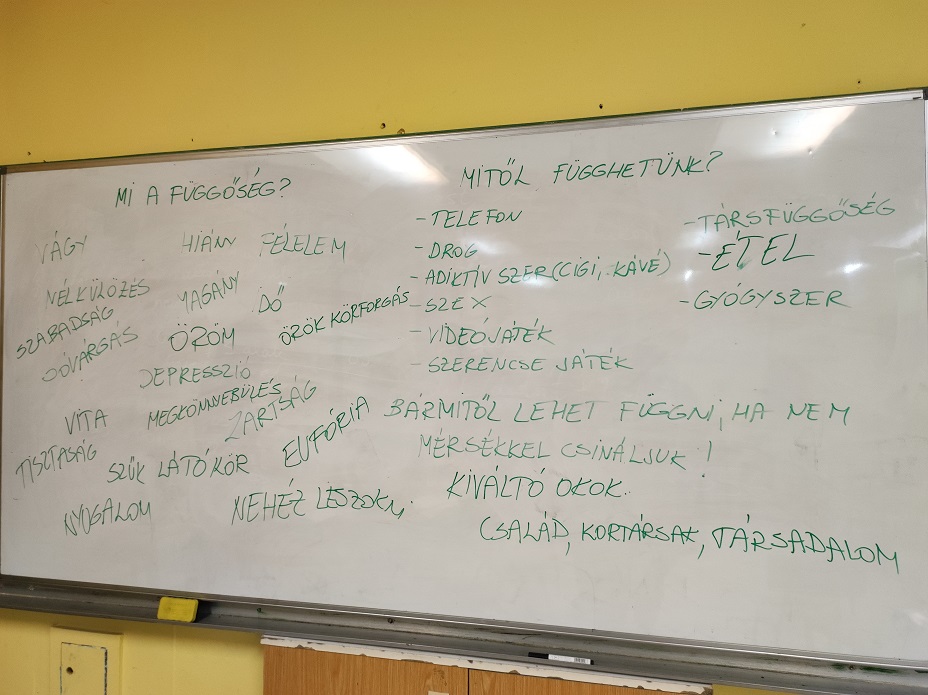 MI A FÜGGŐSÉG?
VÁGY HIÁNY FÉLELEM
NÉLKÜLÖZÉS MAGÁNY IDŐ
SZABADSÁG
SÓVÁRGÁS ÖRÖM ÖRÖK KÖRFORGÁS
DEPRESSZIÓ
VITA MEGKÖNNYEBÜLÉS
ZÁRTSÁG
TISZTASÁG SZŰK LÁTÓKÖR EUFÓRIA
NYUGALOM NEHÉZ LESZOKNI
MITŐL FÜGGHETÜNK?
- TELEFON
- DROG
- ADIKTÍV SZER (CIGI, KÁVÉ)
- SZEX
- VIDEÓJÁTÉK
- SZERENCSE JÁTÉK
- TÁRSFÜGGŐSÉG
- ÉTEL
- GYÓGYSZER
BÁRMITŐL LEHET FÜGGNI, HA NEM
MÉRSÉKKEL CSINÁLJUK!
KIVÁLTÓ OKOK:
CSALÁD, KORTÁRSAK, TÁRSADALOM